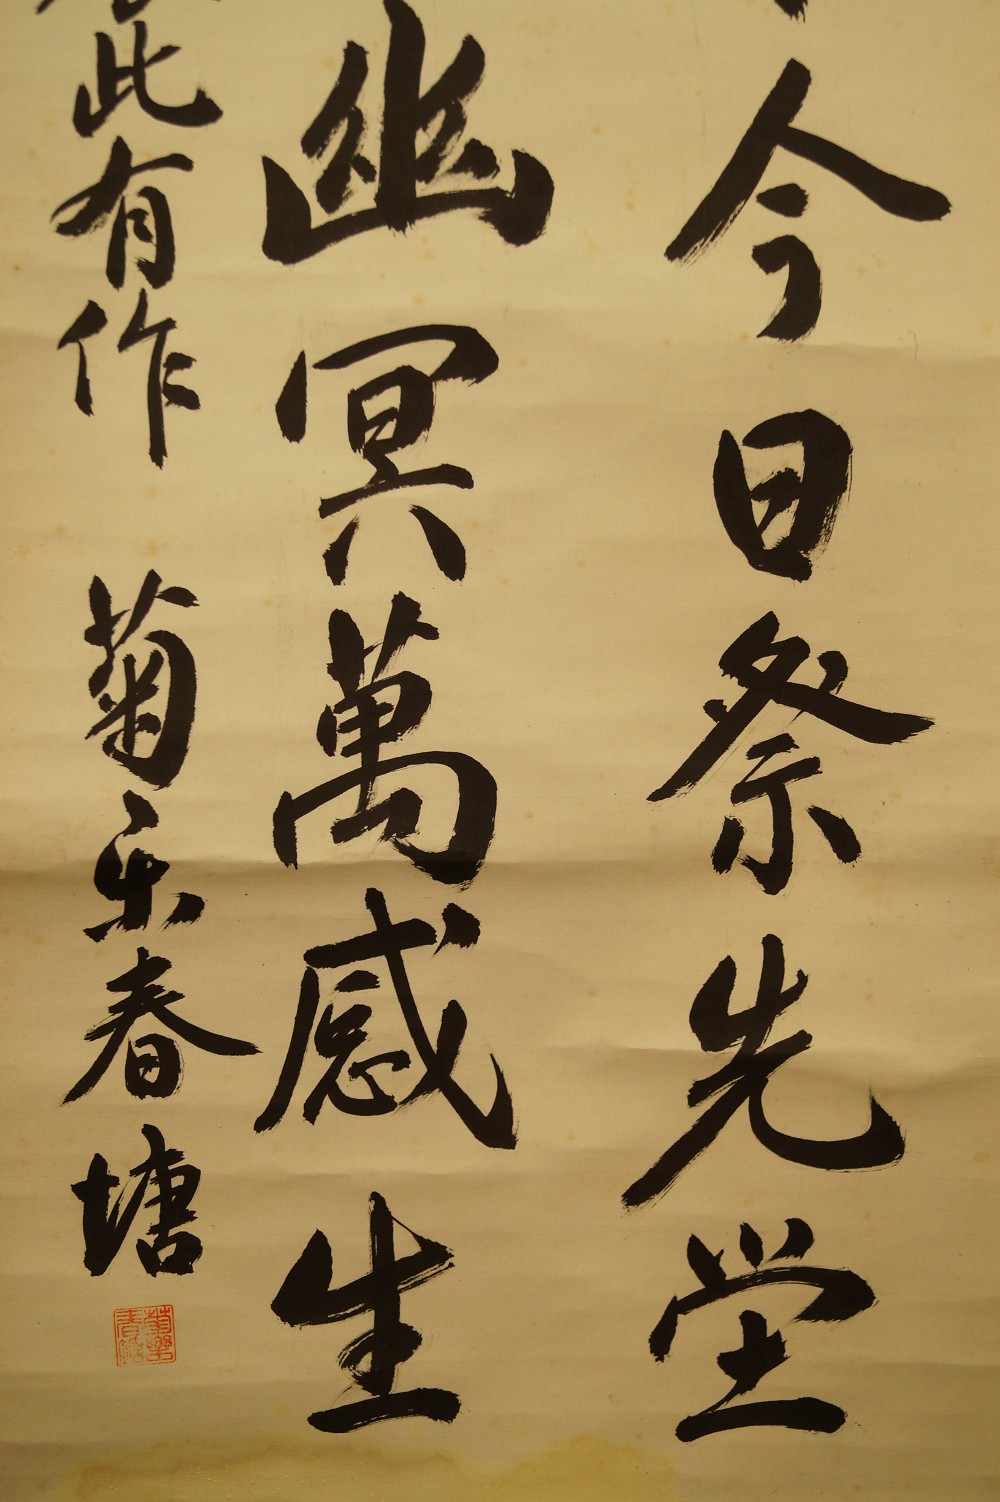 今日祭先堂
幽冥萬感生
此有作 菊乐春塘